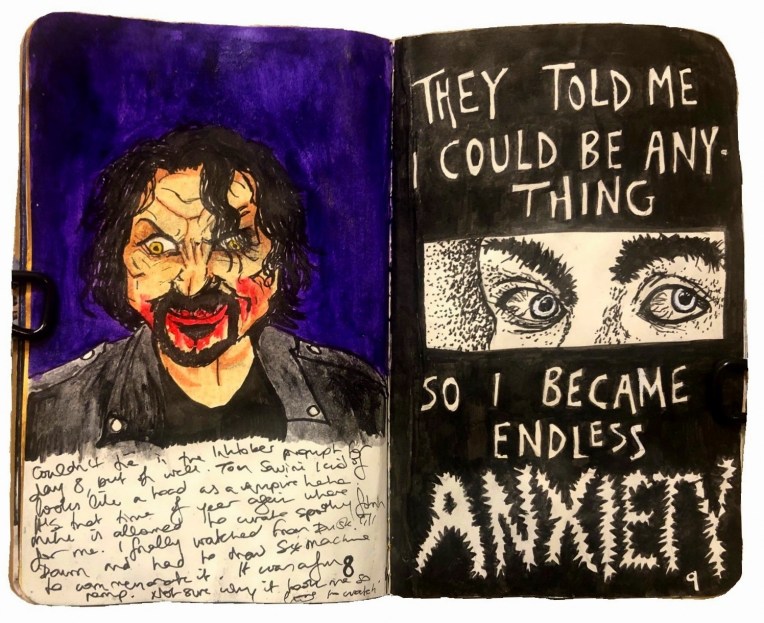 Couldn't tie in the Inktober prompt for
day 8 but oh well. Tom Savini kind of
looks like a toad as a vampire haha.
It's that time of year again where
mike is allowed to curate spooky films
for me. I finally watched From Dusk Till
Dawn and had to draw Sex machine
to commemorate it. It was a fun
romp. Not sure why it took me so
long to watch.
8
THEY TOLD ME
I COULD BE ANY-
THING
SO I BECAME
ENDLESS
ANXIETY
9